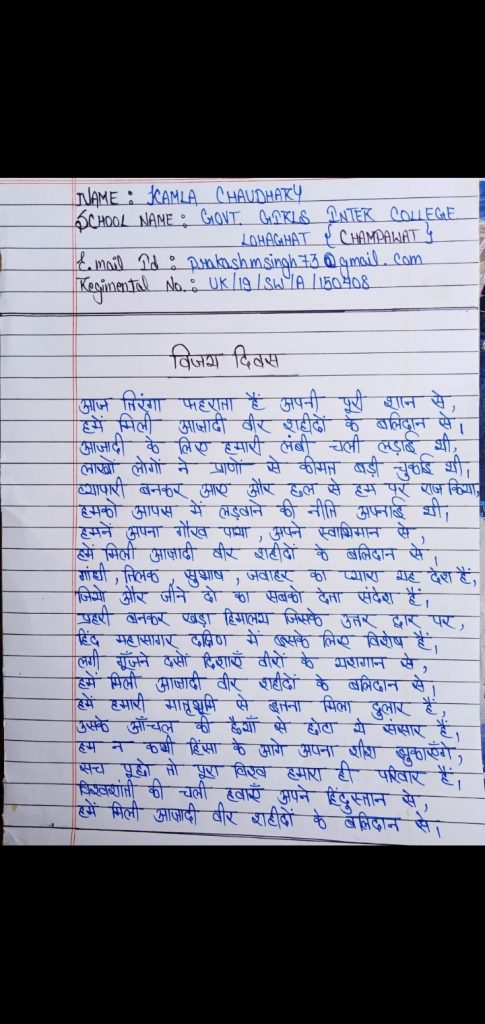 NAME : KAMLA CHAUDHARY
SCHOOL NAME : GOVT. GIRLS INTER COLLEGE
LOHAGHAT { CHAMPAWAT }
E.mail Id : prakashmsingh73@gmail.com
Regimental No. : UK/19/SW/A/150408
विजय दिवस
आज तिरंगा फहराता है अपनी पूरी शान से,
हमें मिली आज़ादी वीर शहीदों के बलिदान से।
आज़ादी के लिए हमारी लंबी चली लड़ाई थी,
लाखों लोगों ने प्राणों से कीमत बड़ी चुकाई थी।
व्यापारी बनकर आए और छल से हम पर राज किया,
हमको आपस में लड़वाने की नीति अपनाई थी।
हमने अपना गौरव पाया, अपने स्वाभिमान से,
हमें मिली आज़ादी वीर शहीदों के बलिदान से।
गांधी, तिलक, सुभाष, जवाहर का प्यारा यह देश है,
जियो और जीने दो का सबको देता संदेश है।
प्रहरी बनकर खड़ा हिमालय जिसके उत्तर द्वार पर,
हिंद महासागर दक्षिण में इसके लिए विशेष है।
लगी गूँजने दसों दिशाएँ वीरों के यशगान से,
हमें मिली आज़ादी वीर शहीदों के बलिदान से।
हमें हमारी मातृभूमि से इतना मिला दुलार है,
उसके आँचल की छैयाँ से छोटा ये संसार है।
हम न कभी हिंसा के आगे अपना शीश झुकाएंगे,
सच पूछो तो पूरा विश्व हमारा ही परिवार है।
विश्वशांति की चली हवाएँ अपने हिंदुस्तान से,
हमें मिली आज़ादी वीर शहीदों के बलिदान से।